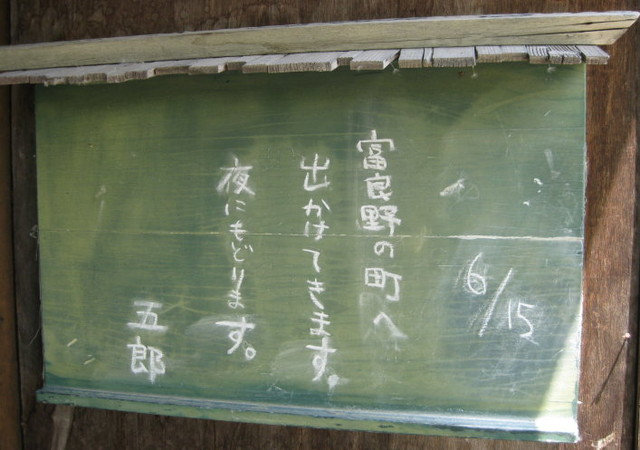 6/15
富良野の町へ
出かけてきます。
夜にもどります。
五郎